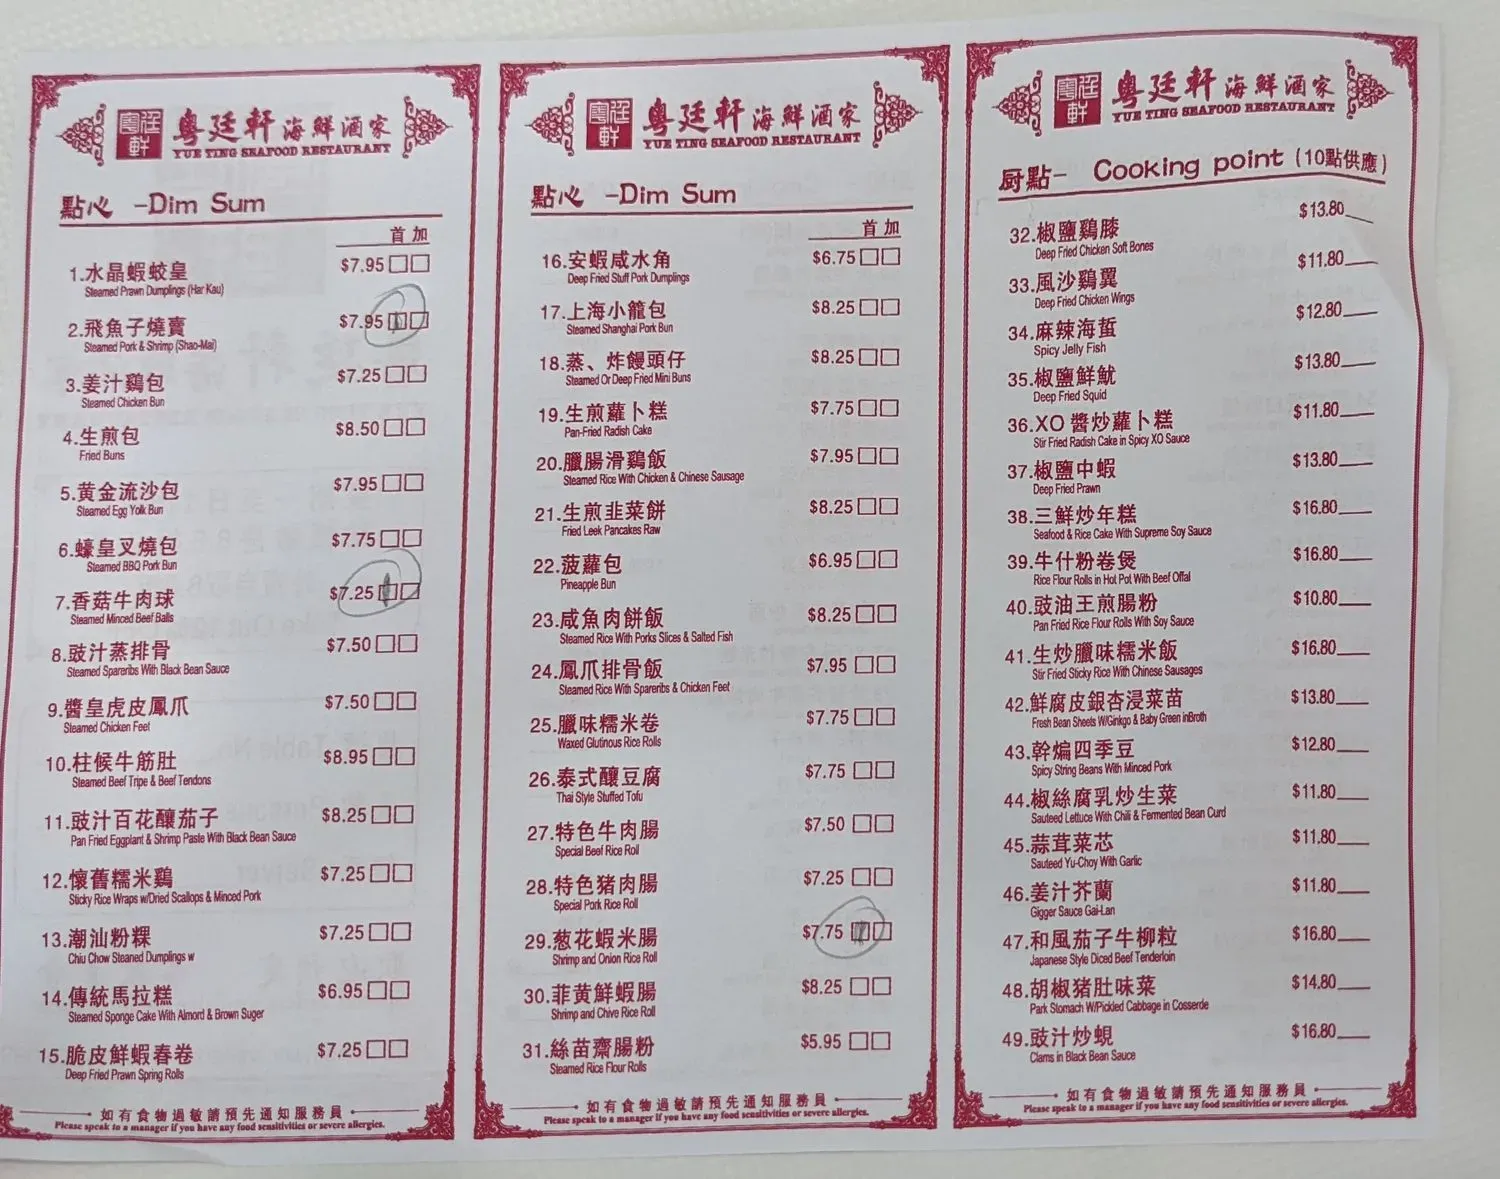 粤廷軒 海鮮酒家
YUE TING SEAFOOD RESTAURANT
點心 -Dim Sum
首 加
1.水晶蝦蛟皇 $7.95
Steamed Prawn Dumplings (Har Kau)
2.飛魚子燒賣 $7.95
Steamed Pork & Shrimp (Shao-Mai)
3.姜汁鷄包 $7.25
Steamed Chicken Bun
4.生煎包 $8.50
Fried Buns
5.黄金流沙包 $7.95
Steamed Egg Yolk Bun
6.蠔皇叉燒包 $7.75
Steamed BBQ Pork Bun
7.香菇牛肉球 $7.25
Steamed Minced Beef Balls
8.豉汁蒸排骨 $7.50
Steamed Spareribs With Black Bean Sauce
9.醬皇虎皮鳳爪 $7.50
Steamed Chicken Feet
10.柱候牛筋肚 $8.95
Steamed Beef Tripe & Beef Tendons
11.豉汁百花釀茄子 $8.25
Pan Fried Eggplant & Shrimp Paste With Black Bean Sauce
12.懷舊糯米鷄 $7.25
Sticky Rice Wraps w/Dried Scallops & Minced Pork
13.潮汕粉粿 $7.25
Chiu Chow Steaned Dumplings w
14.傳統馬拉糕 $6.95
Steamed Sponge Cake With Almord & Brown Suger
15.脆皮鮮蝦春卷 $7.25
Deep Fried Prawn Spring Rolls
如有食物過敏請預先通知服務員
Please speak to a manager if you have any food sensitivities or severe allergies.
粤廷軒 海鮮酒家
YUE TING SEAFOOD RESTAURANT
點心 -Dim Sum
首 加
16.安蝦咸水角 $6.75
Deep Fried Stuff Pork Dumplings
17.上海小籠包 $8.25
Steamed Shanghai Pork Bun
18.蒸、炸饅頭仔 $8.25
Steamed Or Deep Fried Mini Buns
19.生煎蘿卜糕 $7.75
Pan-Fried Radish Cake
20.臘腸滑鷄飯 $7.95
Steamed Rice With Chicken & Chinese Sausage
21.生煎韭菜餅 $8.25
Fried Leek Pancakes Raw
22.菠蘿包 $6.95
Pineapple Bun
23.咸魚肉餅飯 $8.25
Steamed Rice With Porks Slices & Salted Fish
24.鳳爪排骨飯 $7.95
Steamed Rice With Spareribs & Chicken Feet
25.臘味糯米卷 $7.75
Waxed Glutinous Rice Rolls
26.泰式釀豆腐 $7.75
Thai Style Stuffed Tofu
27.特色牛肉腸 $7.50
Special Beef Rice Roll
28.特色猪肉腸 $7.25
Special Pork Rice Roll
29.葱花蝦米腸 $7.75
Shrimp and Onion Rice Roll
30.菲黄鮮蝦腸 $8.25
Shrimp and Chive Rice Roll
31.絲苗齋腸粉 $5.95
Steamed Rice Flour Rolls
如有食物過敏請預先通知服務員
Please speak to a manager if you have any food sensitivities or severe allergies.
粤廷軒 海鮮酒家
YUE TING SEAFOOD RESTAURANT
厨點- Cooking point (10點供應)
32.椒鹽鷄膝 $13.80
Deep Fried Chicken Soft Bones
33.風沙鷄翼 $11.80
Deep Fried Chicken Wings
34.麻辣海蜇 $12.80
Spicy Jelly Fish
35.椒鹽鮮魷 $13.80
Deep Fried Squid
36.XO 醬炒蘿卜糕 $11.80
Stir Fried Radish Cake in Spicy XO Sauce
37.椒鹽中蝦 $13.80
Deep Fried Prawn
38.三鮮炒年糕 $16.80
Seafood & Rice Cake With Supreme Soy Sauce
39.牛什粉卷煲 $16.80
Rice Flour Rolls in Hot Pot With Beef Offal
40.豉油王煎腸粉 $10.80
Pan Fried Rice Flour Rolls With Soy Sauce
41.生炒臘味糯米飯 $16.80
Stir Fried Sticky Rice With Chinese Sausages
42.鮮腐皮銀杏浸菜苗 $13.80
Fresh Bean Sheets W/Ginkgo & Baby Green inBroth
43.幹煸四季豆 $12.80
Spicy String Beans With Minced Pork
44.椒絲腐乳炒生菜 $11.80
Sauteed Lettuce With Chili & Fermented Bean Curd
45.蒜茸菜芯 $11.80
Sauteed Yu-Choy With Garlic
46.姜汁芥蘭 $11.80
Gigger Sauce Gai-Lan
47.和風茄子牛柳粒 $16.80
Japanese Style Diced Beef Tenderloin
48.胡椒猪肚味菜 $14.80
Park Stomach W/Pickled Cabbage in Cosserde
49.豉汁炒蜆 $16.80
Clams in Black Bean Sauce
如有食物過敏請預先通知服務員
Please speak to a manager if you have any food sensitivities or severe allergies.